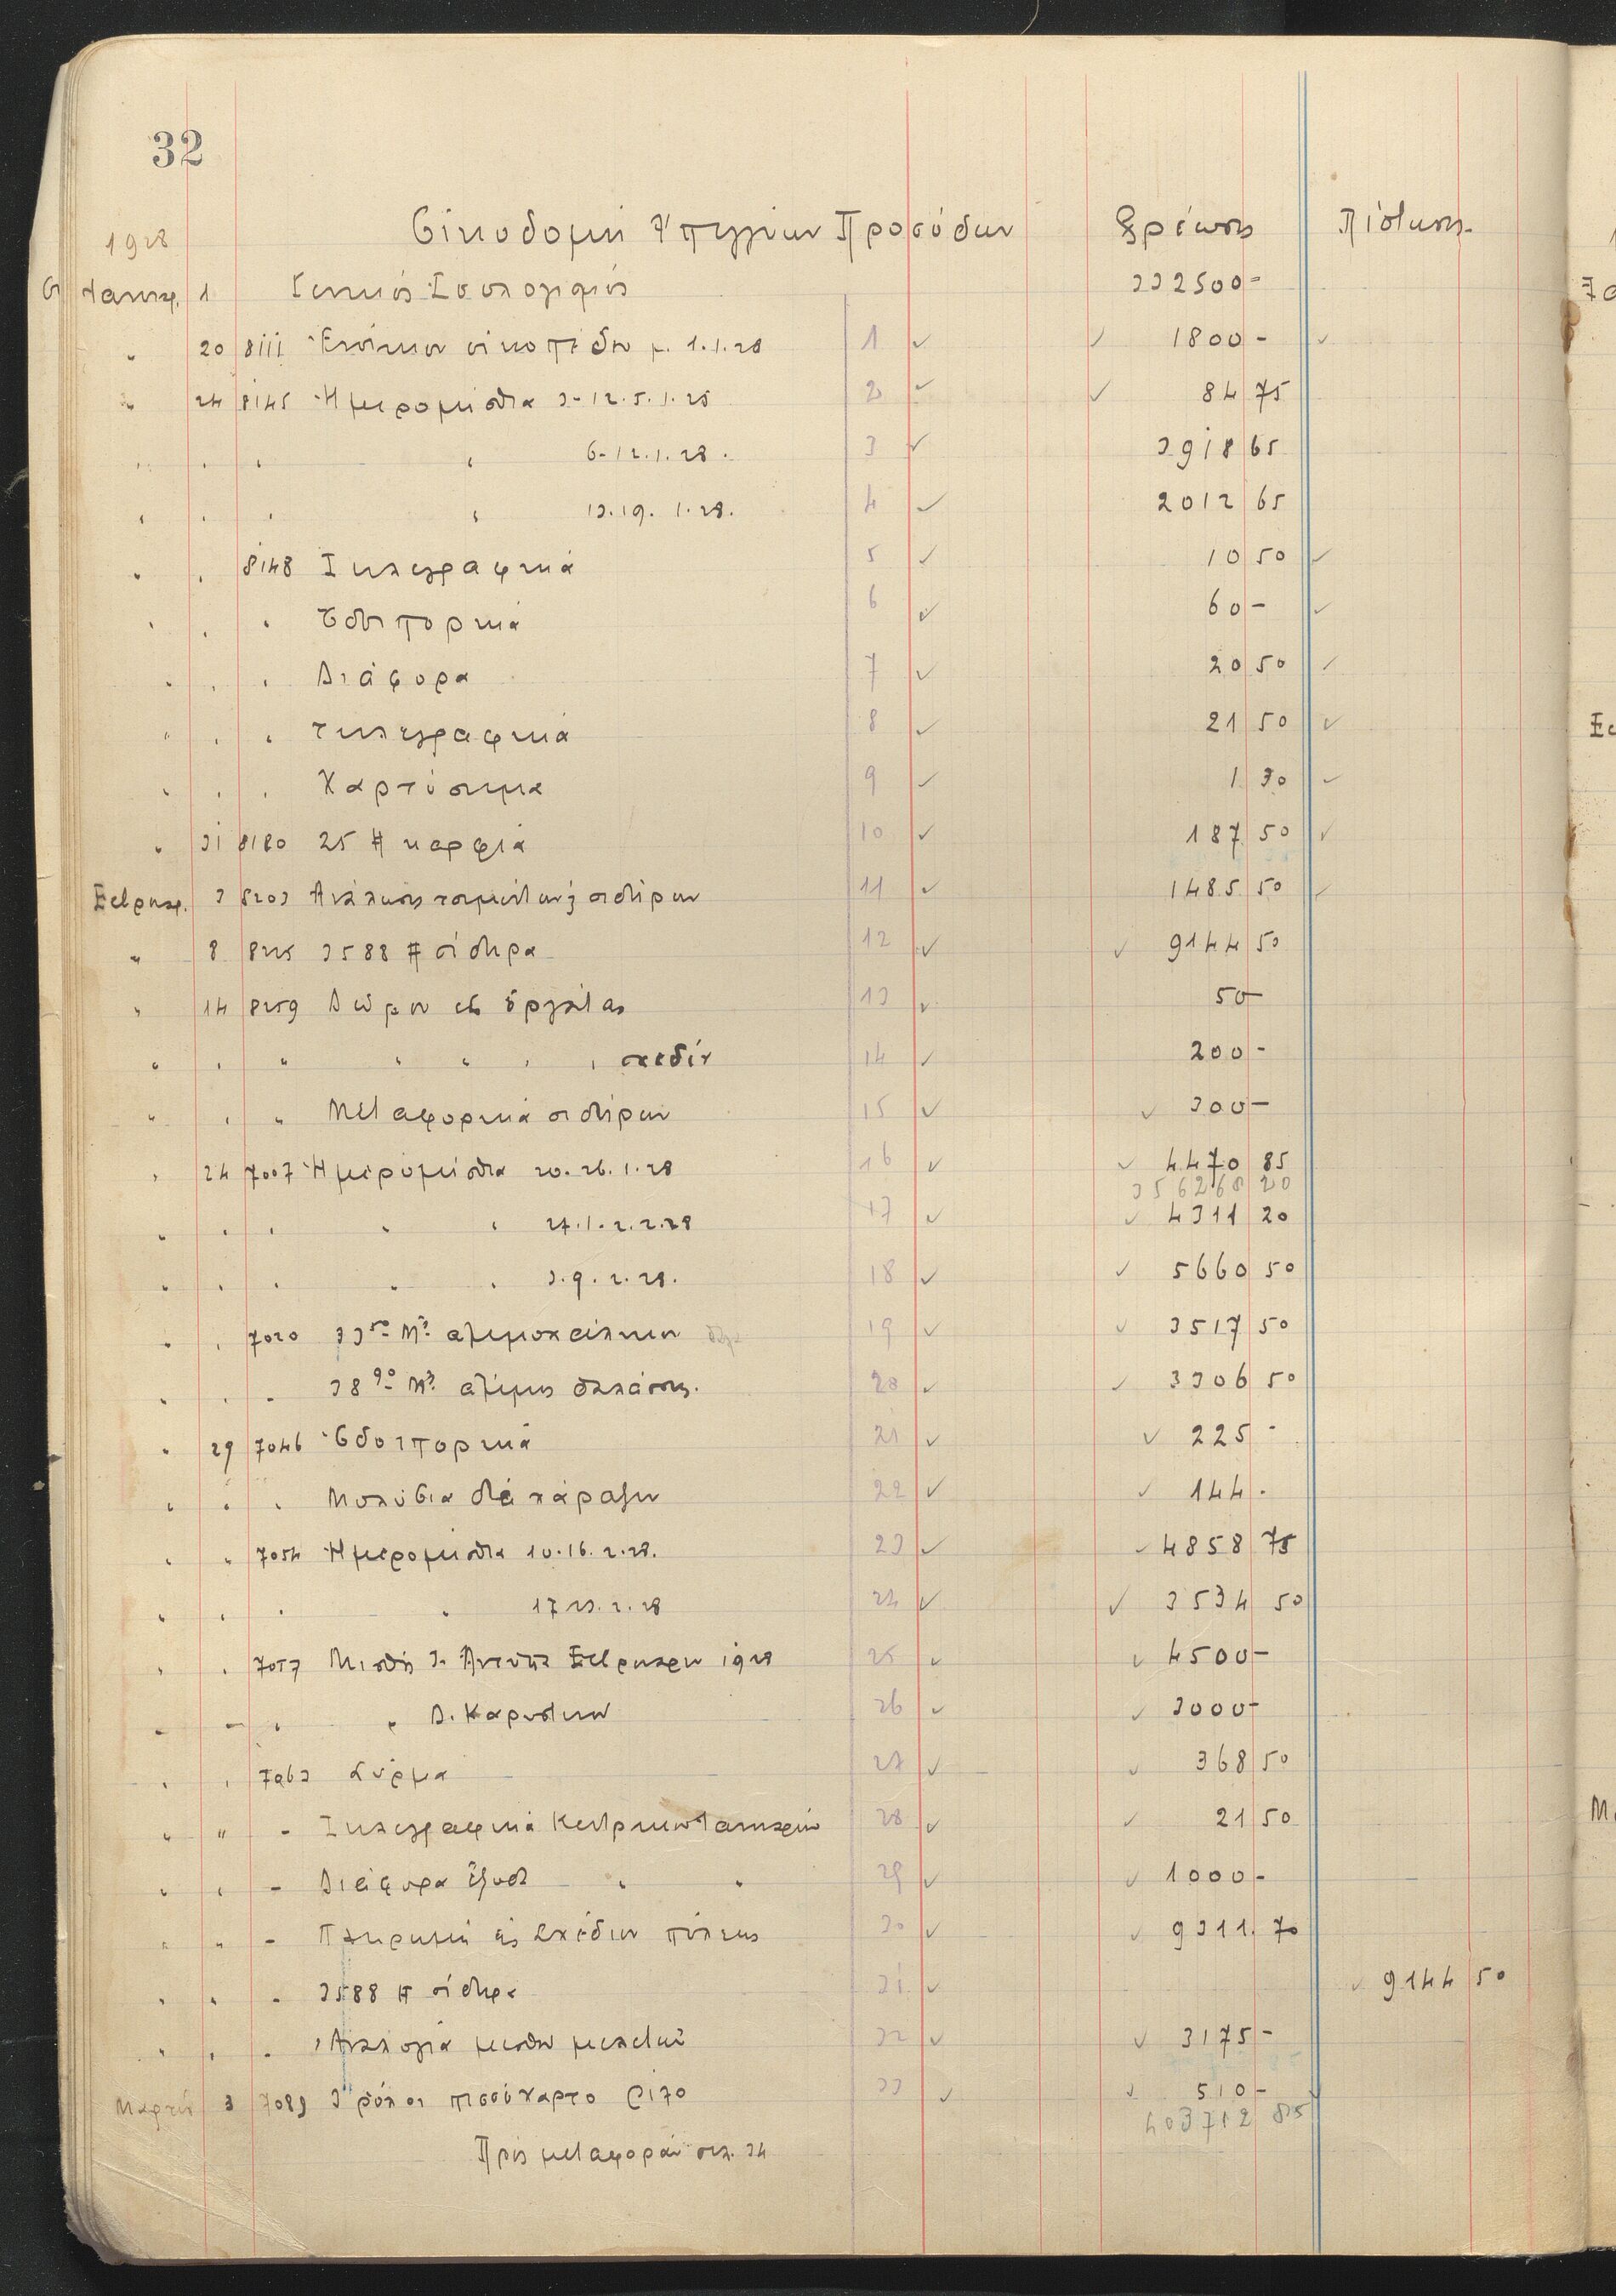 32
1928 Οἰκοδομή Προσόδων Χρέωσις Πίστωσις
1 Γενικός Ισολογισμός 332500-
" 20 8111 οἰκοπέδου 1.1.28 1 1800-
" 24 8145 Ἡμερομίσθια 3-12.5.1.28 2 84 75
" " " " 6-12.1.28. 3 3918 65
" " " " 13.19.1.28. 4 2012 65
" " 8148 Τηλεγραφικά 5 10 50
" " " Ὁδοιπορικά 6 60-
" " " Διάφορα 7 20 50
" " " Τηλεγραφικά 8 21 50
" " " Χαρτόσημα 9 1 30
" 31 8180 25 # καρφιά 10 187 50
Φεβρουαρ. 3 8203 Ἀνάλωσις τσιμέντων & σιδήρων 11 1485 50
" 8 8225 3588 # σίδηρα 12 9144 50
" 14 8259 Δῶρον εἰς ἐργάτας 13 50-
" " " " " " " σχεδίν 14 200-
" " " Μεταφορικά σιδήρων 15 300-
" 24 7007 Ἡμερομίσθια 20.26.1.28 16 4470 85
356268 20
" " " " " 27.1.2.2.28 17 4311 20
" " " " " 3.9.2.28. 18 5660 50
" " 7020 33 50 Μ3 19 3517 50
" " " 38 90 Μ3 ἄμμος θαλάσσης. 20 3306 50
" 29 7046 Ὁδοιπορικά 21 225-
" " " Μολύβια διά χάραξιν 22 144.
" " 7054 Ἡμερομίσθια 10.16.2.28. 23 4858 75
" " " " 17 23.2.28 24 3534 50
" " 7057 Μισθός Φεβρουαρίου 1928 25 4500-
" " " " Δ. Καρυστινοῦ 26 3000-
" " 7063 Σύρμα 27 368 50
" " - Τηλεγραφικά Κεντρικοῦ Ἰανουαρίου 28 21 50
" " - Διάφορα ἔξοδα " " 29 1000-
" " - Πληρωμή εἰς Σχέδιον πόλεως 30 9311 70
" " " 3588 # σίδηρα 31 9144 50
" " " Ἀναλογία μισθῶν μελετῶν 32 3175-
Μαρτίου 3 7089 3 ρόλοι πισσόχαρτο 170 33 510-
403712 85
Πρός μεταφοράν σελ. 34